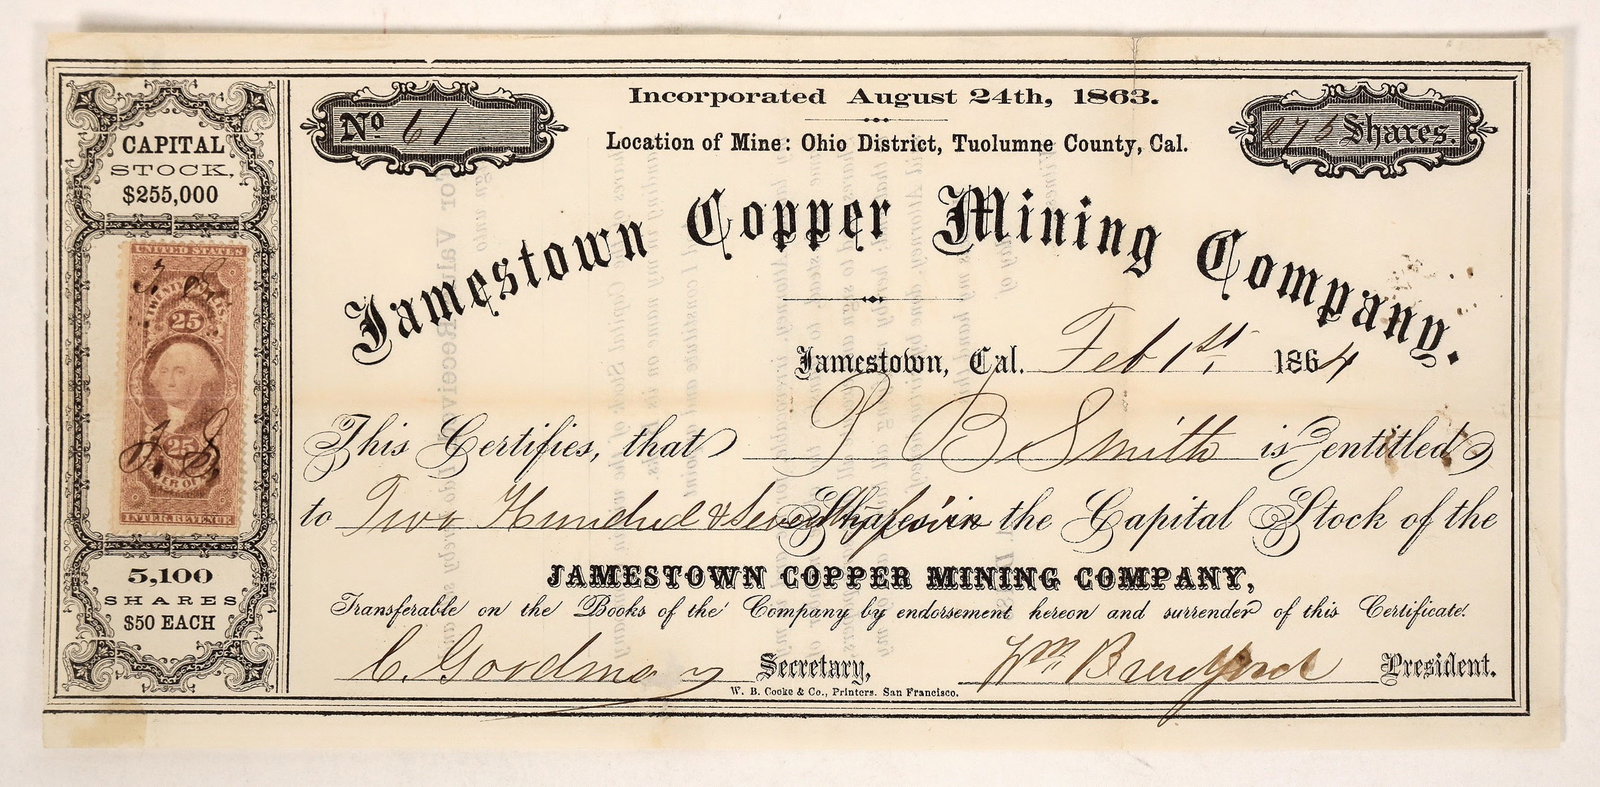 CAPITAL
STOCK,
$255,000
UNITED STATES
25
25
INTER. REVENUE
5,100
SHARES
$50 EACH
No 61
Incorporated August 24th, 1863.
Location of Mine: Ohio District, Tuolumne County, Cal.
275 Shares.
Jamestown Copper Mining Company.
Jamestown, Cal. Feb 1st, 1864
This Certifies, that B Smith is entitled
to Two Hundred & Seventy five Shares in the Capital Stock of the
JAMESTOWN COPPER MINING COMPANY,
Transferable on the Books of the Company by endorsement hereon and surrender of this Certificate.
C. Goodman Secretary, Wm President.
W. B. Cooke & Co., Printers. San Francisco.